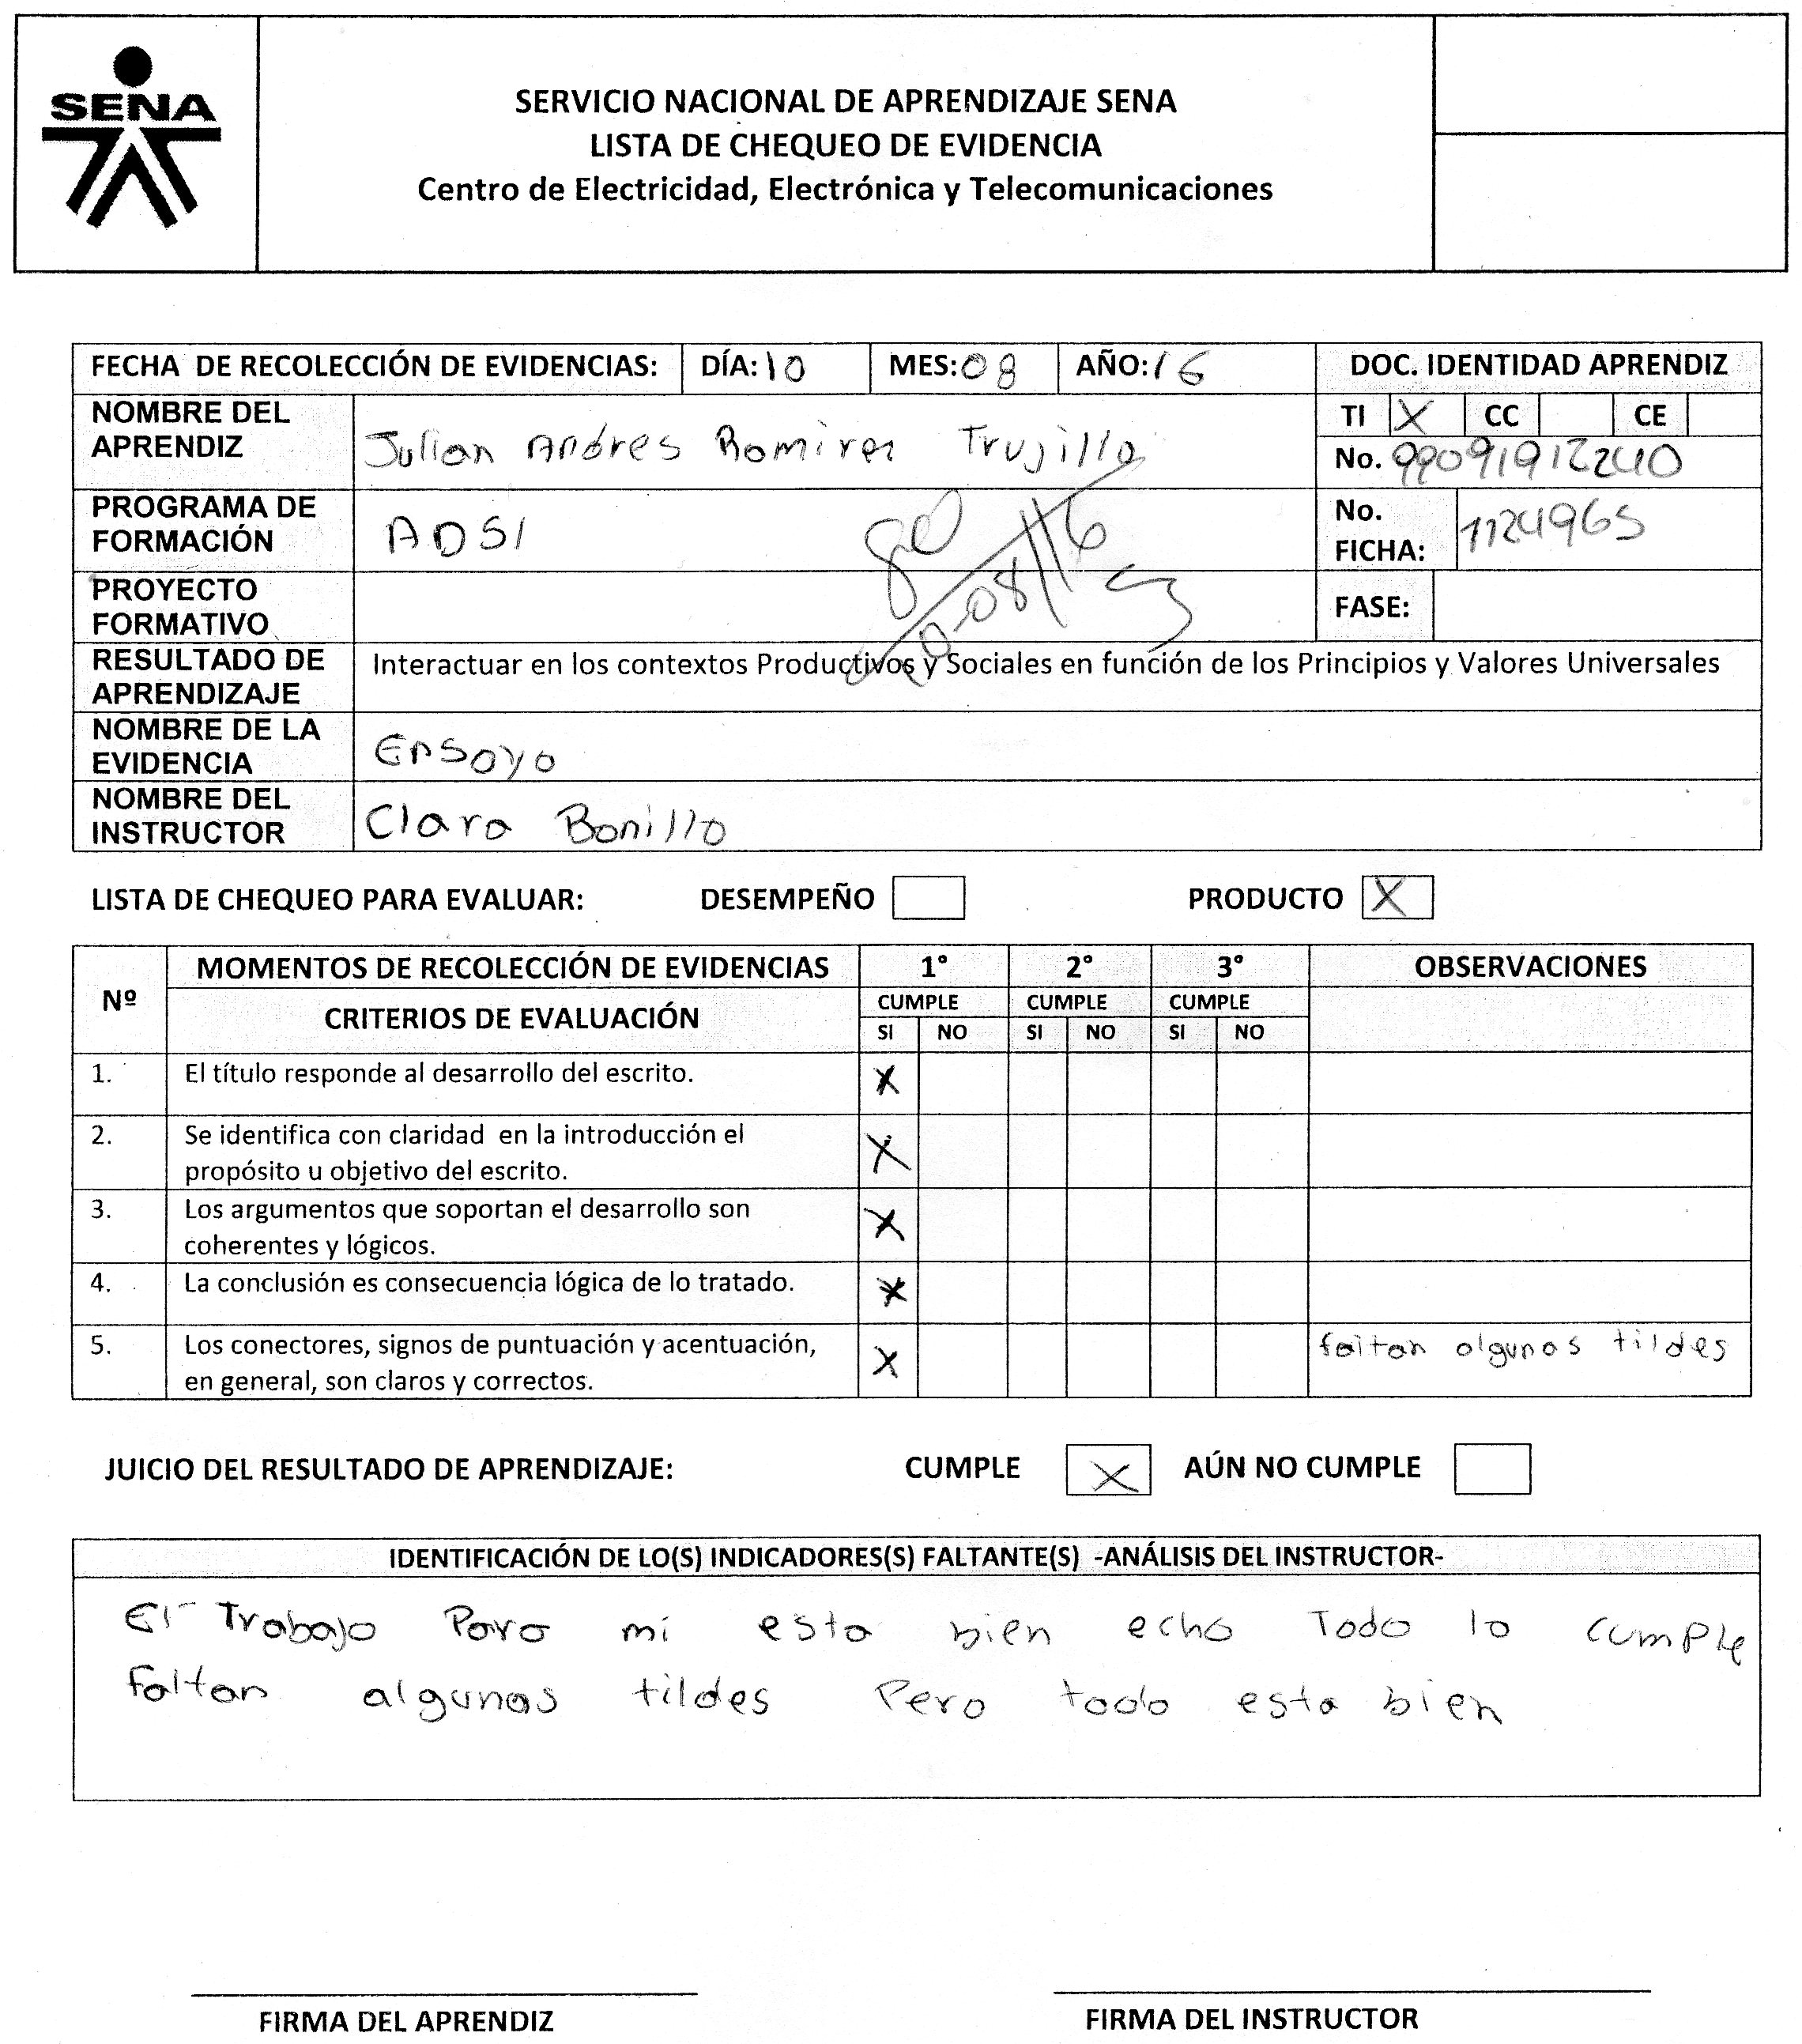 SENA
SERVICIO NACIONAL DE APRENDIZAJE SENA
LISTA DE CHEQUEO DE EVIDENCIA
Centro de Electricidad, Electrónica y Telecomunicaciones
FECHA DE RECOLECCIÓN DE EVIDENCIAS: DÍA: 10 MES: 08 AÑO: 16 DOC. IDENTIDAD APRENDIZ
NOMBRE DEL APRENDIZ Julian Andres Ramirez Trujillo TI X CC CE
No. 99091912240
PROGRAMA DE FORMACIÓN ADSI No. FICHA: 1124965
10-08/16
PROYECTO FORMATIVO FASE:
RESULTADO DE APRENDIZAJE Interactuar en los contextos Productivos y Sociales en función de los Principios y Valores Universales
NOMBRE DE LA EVIDENCIA Ensayo
NOMBRE DEL INSTRUCTOR Clara Bonilla
LISTA DE CHEQUEO PARA EVALUAR: DESEMPEÑO PRODUCTO X
Nº MOMENTOS DE RECOLECCIÓN DE EVIDENCIAS 1° 2° 3° OBSERVACIONES
CRITERIOS DE EVALUACIÓN CUMPLE CUMPLE CUMPLE
SI NO SI NO SI NO
1. El título responde al desarrollo del escrito. X
2. Se identifica con claridad en la introducción el
propósito u objetivo del escrito. X
3. Los argumentos que soportan el desarrollo son
coherentes y lógicos. X
4. La conclusión es consecuencia lógica de lo tratado. X
5. Los conectores, signos de puntuación y acentuación, X faltan algunas tildes
en general, son claros y correctos.
JUICIO DEL RESULTADO DE APRENDIZAJE: CUMPLE X AÚN NO CUMPLE
IDENTIFICACIÓN DE LO(S) INDICADORES(S) FALTANTE(S) -ANÁLISIS DEL INSTRUCTOR-
El Trabajo Para mi esta bien echo Todo lo cumple
Faltan algunas tildes Pero todo esta bien
FIRMA DEL APRENDIZ FIRMA DEL INSTRUCTOR